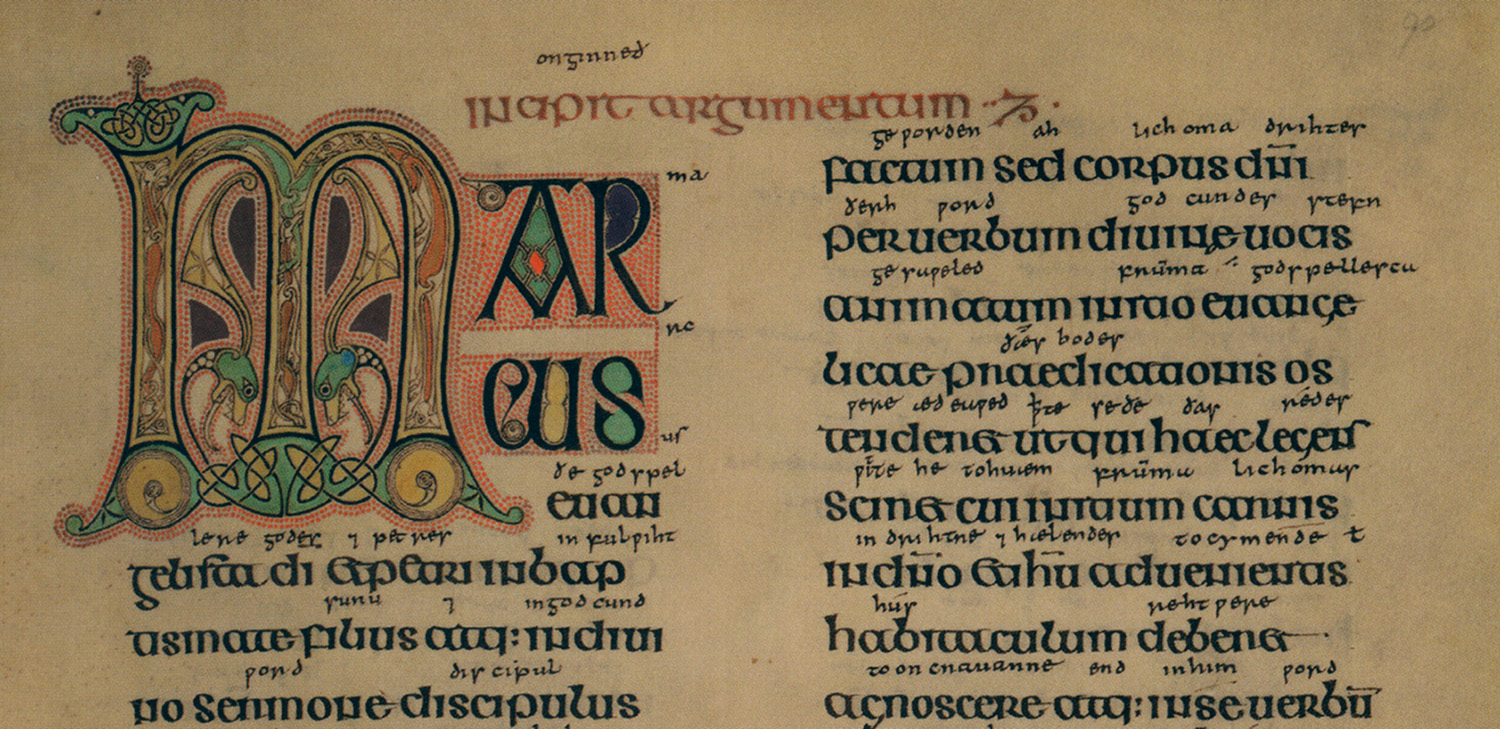 onginneð
incipit argumentum
90
MARCUS
ma
rc
us
ðe godspel
euan
lere godes ⁊ petres in fulƿiht
gelista di et petri in bap
sunu ⁊ in god cund
tismate filius atq: in diui
ƿord discipul
no sermone discipulus
geƿorden ah lichoma drihtes
factum sed corpus dn̄i
ðerh ƿord god cundes stefn
per uerbum diuinae uocis
fruma godspellesca
animatum initio euange
bodes
licae praedicationis os
ƿere æd euƿed ꝥte ðas
tenderet ut qui haec legens
he tohuæm frūma lichomas
sciret cui initium carnis
in drihtne ⁊ hælendes tocymende ł
in dn̄o et ihū aduenientis
hus reht ƿere
habitaculum deberet
to oncnauanne end in him ƿord
agnoscere atq: in se uerbū